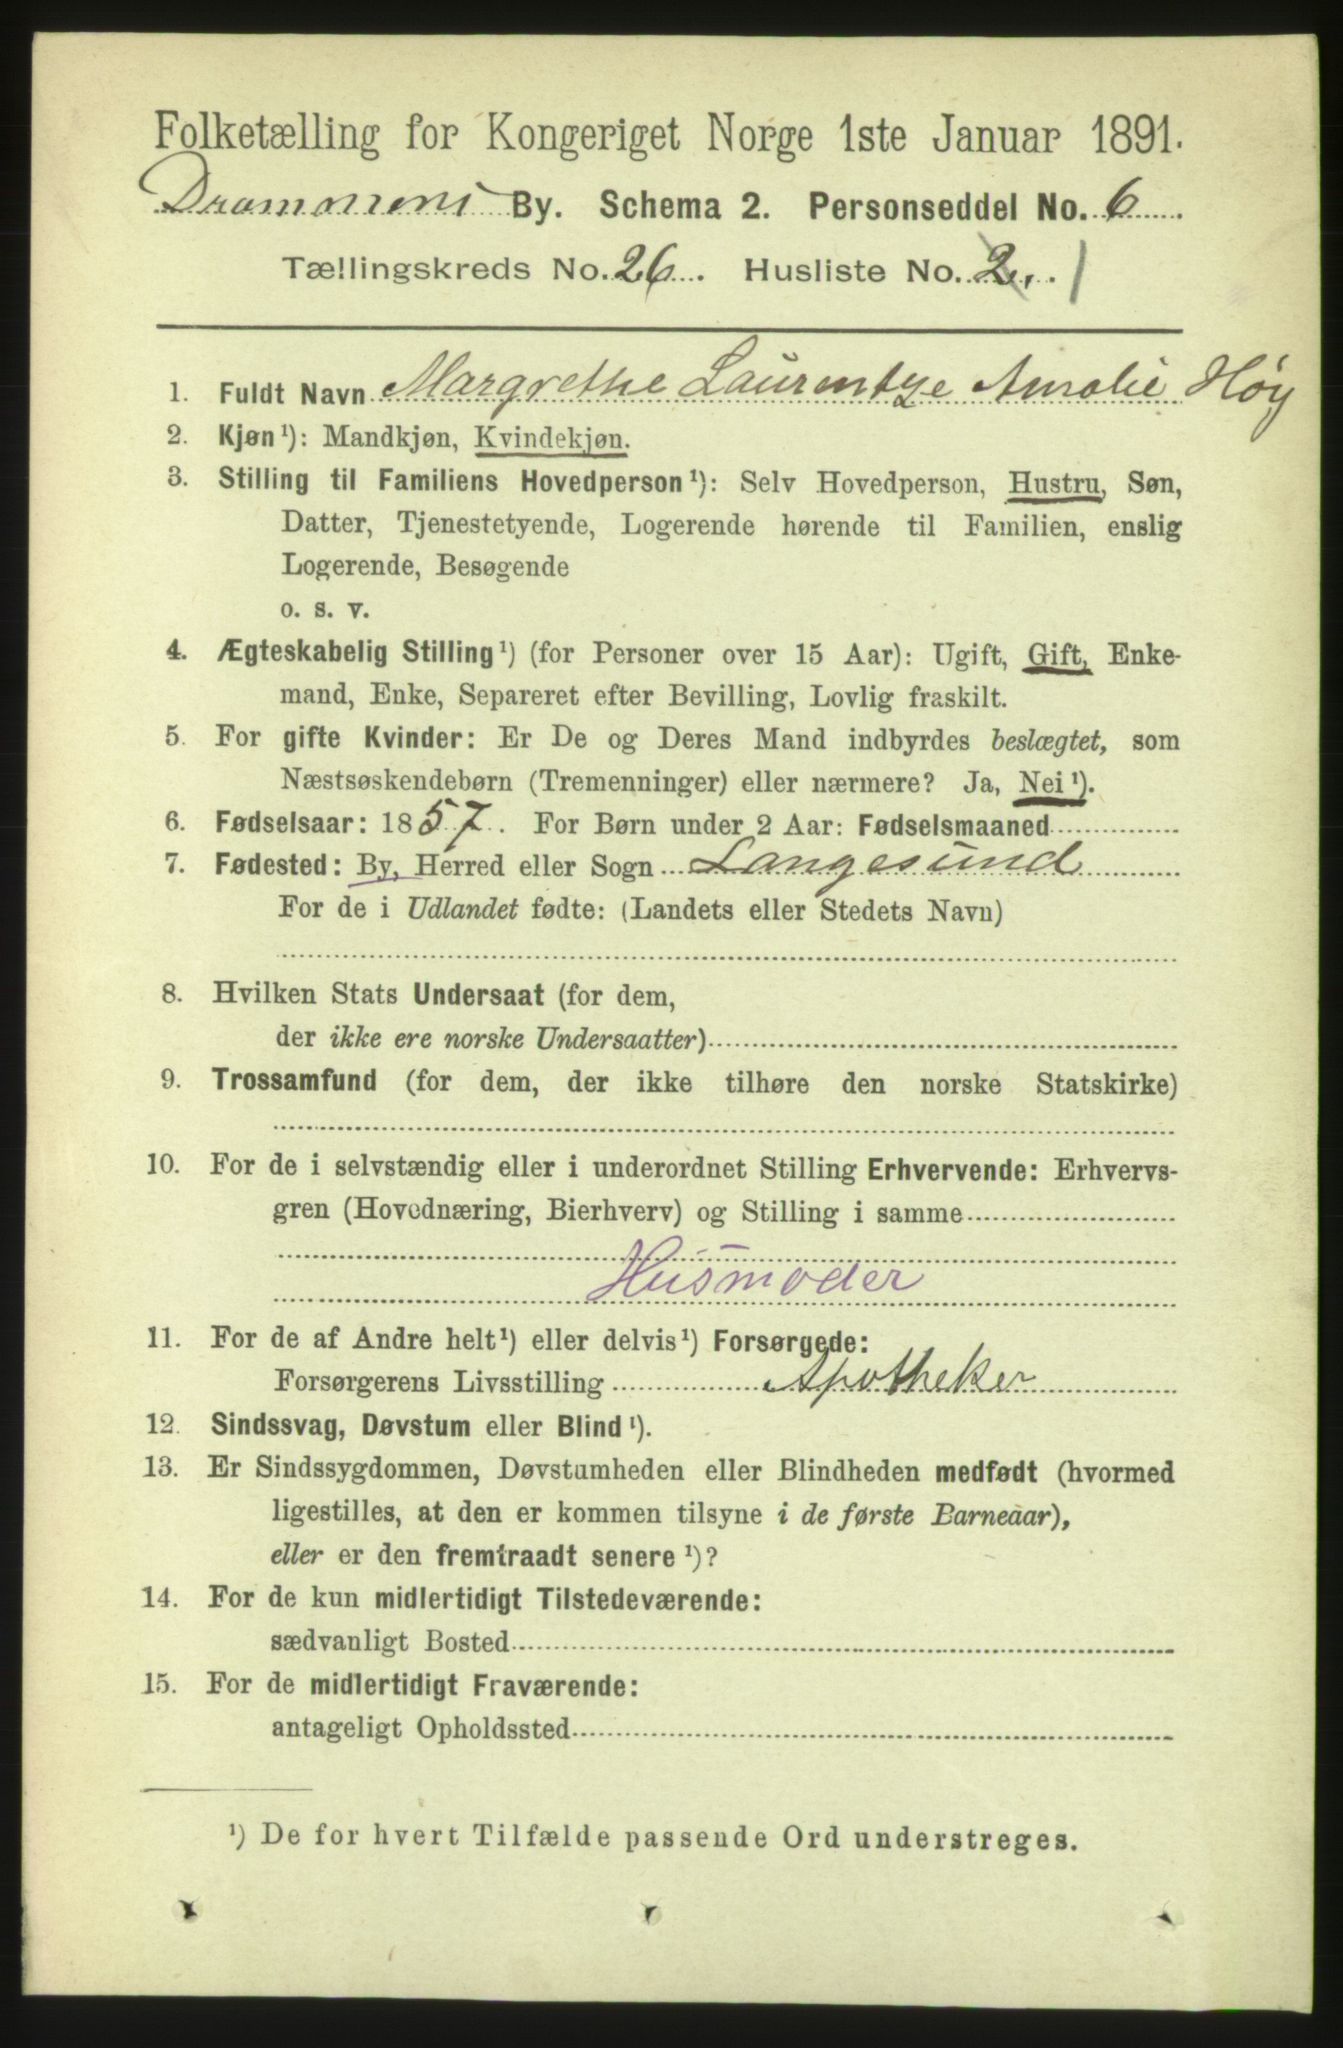 Folketælling for Kongeriget Norge 1ste Januar 1891.
Drammens By. Schema 2. Personseddel No. 6
Tællingskreds No. 26. Husliste No. 2. 1
1. Fuldt Navn Margrethe Laurentze Amalie Høy
2. Kjøn ¹): Mandkjøn, Kvindekjøn.
3. Stilling til Familiens Hovedperson ¹): Selv Hovedperson, Hustru, Søn,
Datter, Tjenestetyende, Logerende hørende til Familien, enslig
Logerende, Besøgende
o. s. v.
4. Ægteskabelig Stilling ¹) (for Personer over 15 Aar): Ugift, Gift, Enke-
mand, Enke, Separeret efter Bevilling, Lovlig fraskilt.
5. For gifte Kvinder: Er De og Deres Mand indbyrdes beslægtet, som
Næstsøskendebørn (Tremenninger) eller nærmere? Ja, Nei ¹).
6. Fødselsaar: 1857. For Børn under 2 Aar: Fødselsmaaned
7. Fødested: By, Herred eller Sogn Langesund
For de i Udlandet fødte: (Landets eller Stedets Navn)
8. Hvilken Stats Undersaat (for dem,
der ikke ere norske Undersaatter)
9. Trossamfund (for dem, der ikke tilhøre den norske Statskirke)
10. For de i selvstændig eller i underordnet Stilling Erhvervende: Erhvervs-
gren (Hovednæring, Bierhverv) og Stilling i samme
Husmoder
11. For de af Andre helt ¹) eller delvis ¹) Forsørgede:
Forsørgerens Livsstilling Apotheker
12. Sindssvag, Døvstum eller Blind ¹).
13. Er Sindssygdommen, Døvstumheden eller Blindheden medfødt (hvormed
ligestilles, at den er kommen tilsyne i de første Barneaar),
eller er den fremtraadt senere ¹)?
14. For de kun midlertidigt Tilstedeværende:
sædvanligt Bosted
15. For de midlertidigt Fraværende:
antageligt Opholdssted
¹) De for hvert Tilfælde passende Ord understreges.